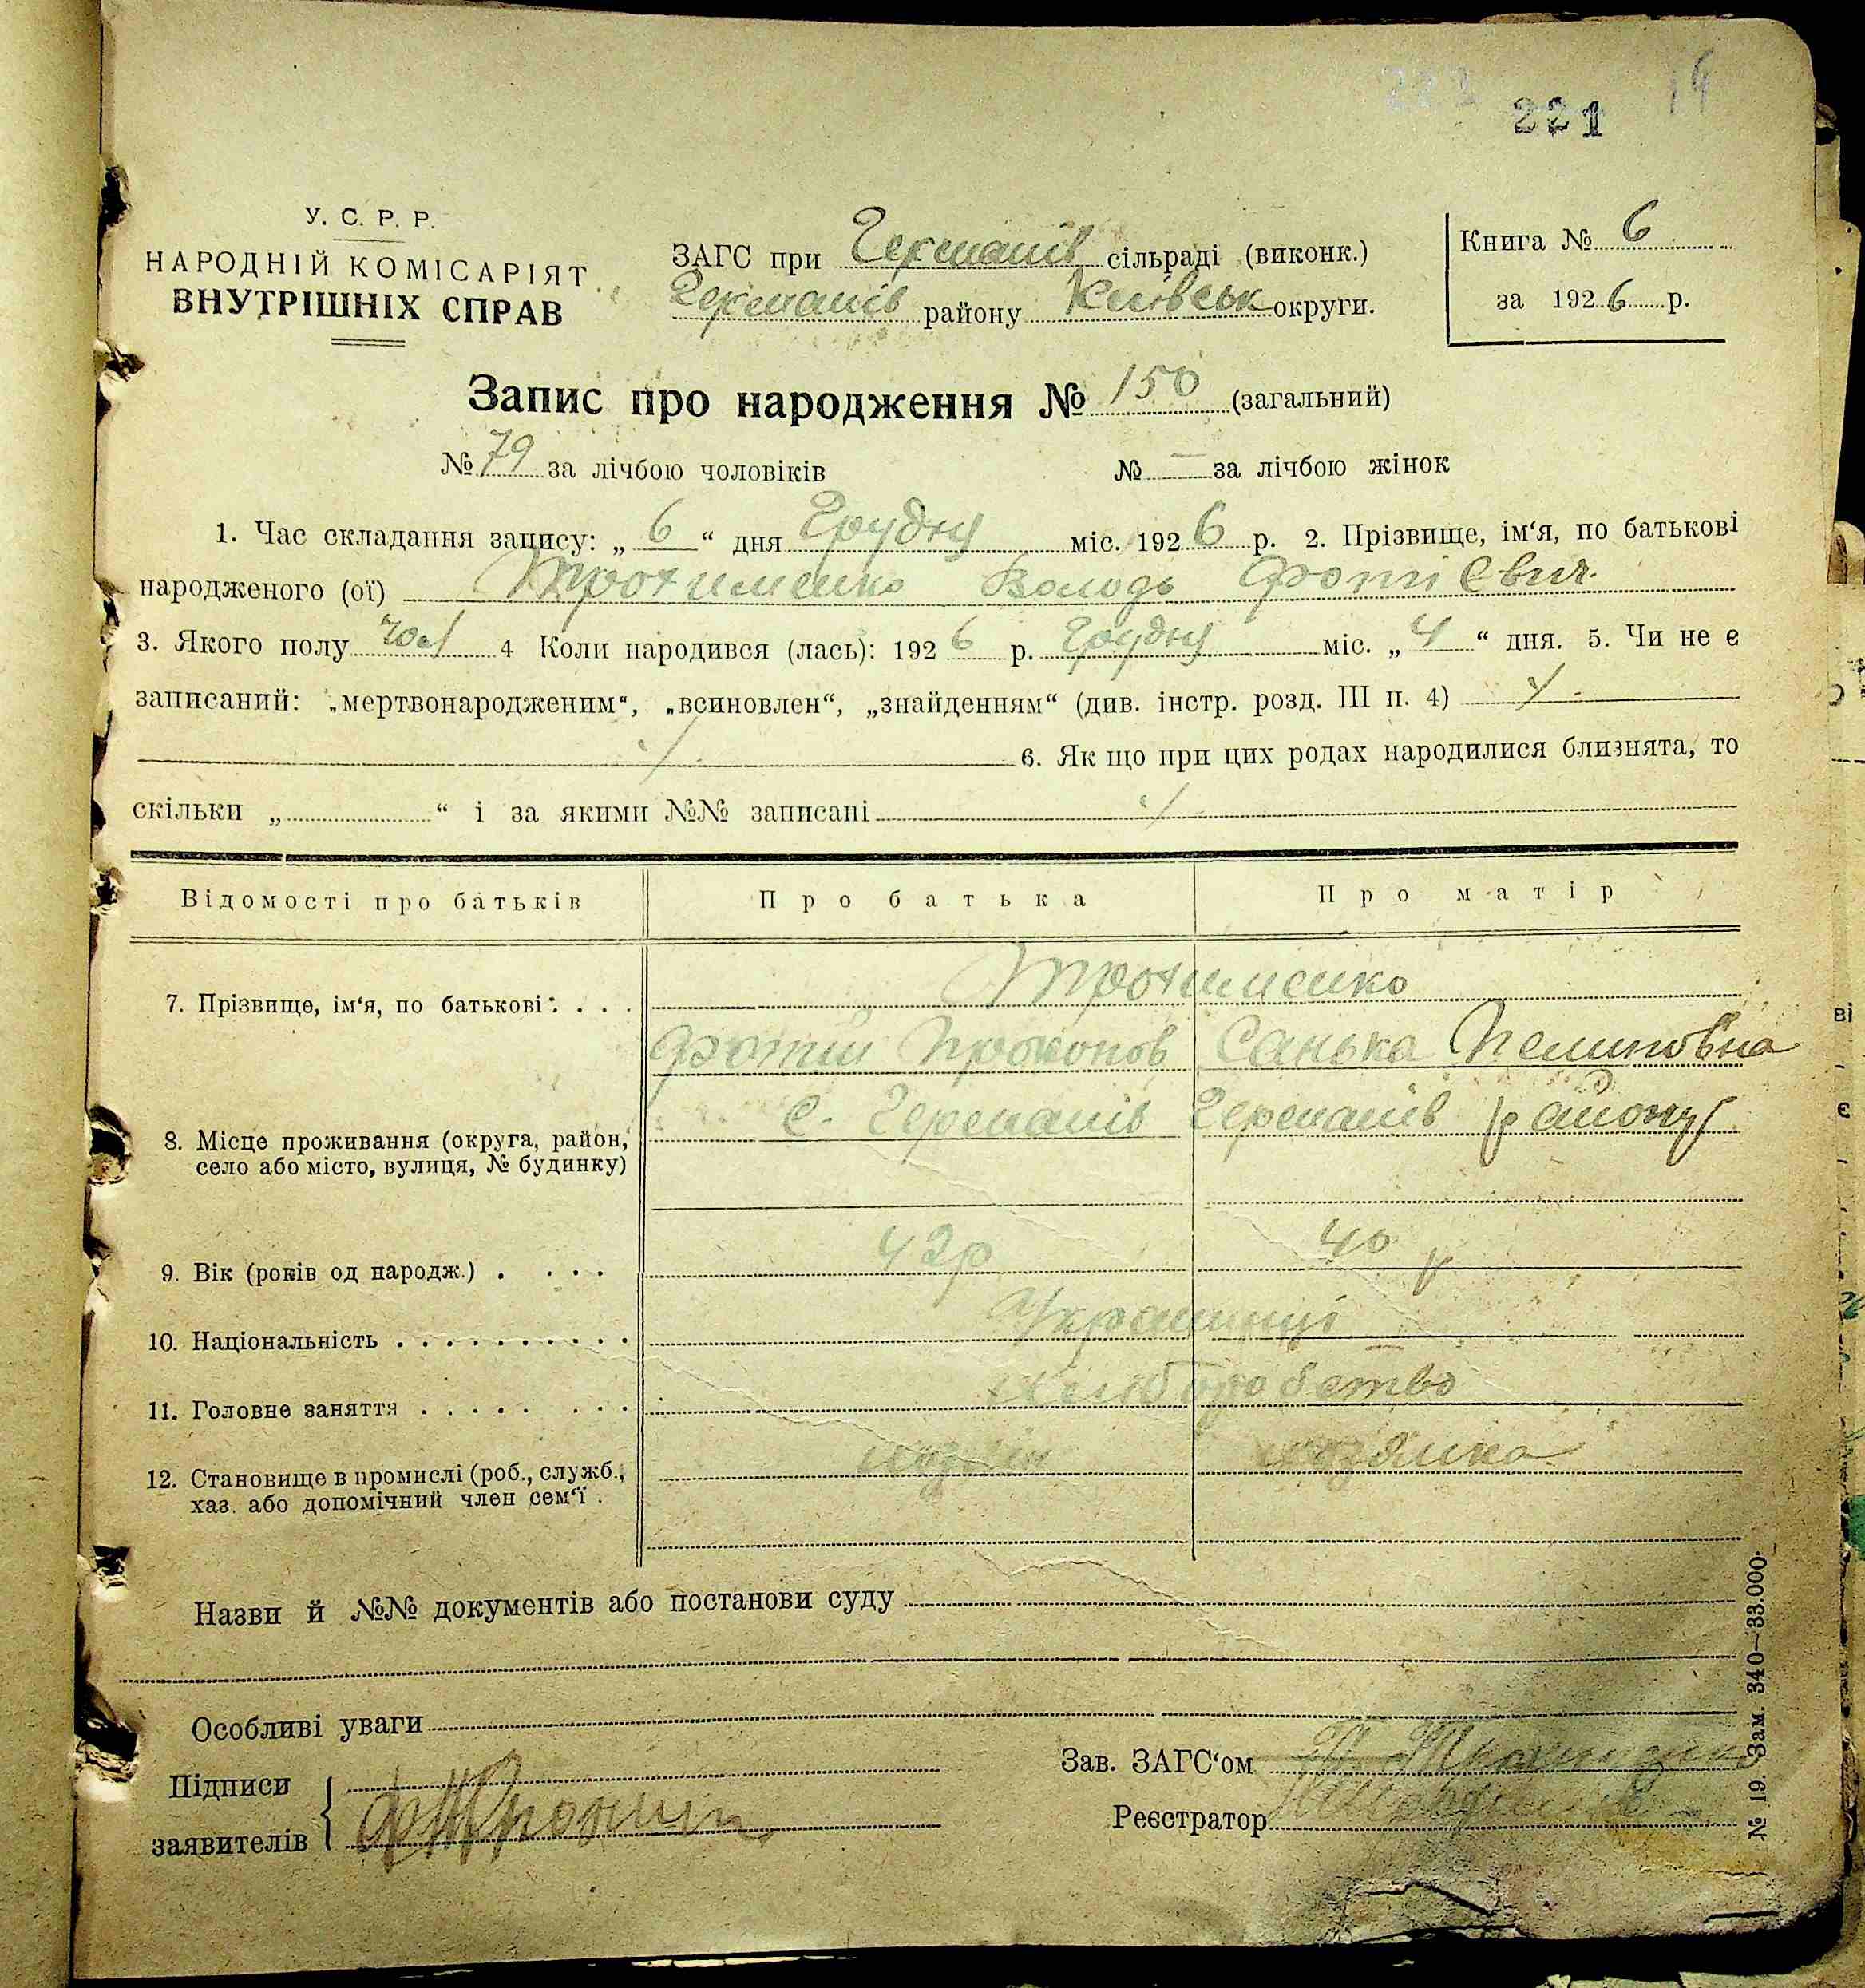 221
У. С. Р. Р.
НАРОДНІЙ КОМІСАРІЯТ
ВНУТРІШНІХ СПРАВ
ЗАГС при Германів сільраді (виконк.)
Германів району Київськ округи.
Книга № 6
за 1926 р.
Запис про народження № 150 (загальний)
№ 79 за лічбою чоловіків № — за лічбою жінок
1. Час складання запису: „ 6 “ дня Грудня міс. 1926 р. 2. Прізвище, ім‘я, по батькові
народженого (ої) Трохименко Володь Фотієвич
3. Якого полу чол 4 Коли народився (лась): 1926 р. Грудня міс. „ 4 “ дня. 5. Чи не є
записаний: „мертвонародженим“, „всиновлен“, „знайденням“ (див. інстр. розд. III п. 4)
6. Як що при цих родах народилися близнята, то
скільки „ “ і за якими №№ записані
Відомості про батьків Про батька Про матір
7. Прізвище, ім‘я, по батькові: Трохименко
Фотий Прокопов Санька Пелиповна
8. Місце проживання (округа, район, с. Германів Германів району
село або місто, вулиця, № будинку)
9. Вік (років од народж.) 42р 40 р
10. Національність Украинці
11. Головне заняття хліборобство
12. Становище в промислі (роб., служб., хазяїн хазяйка
хаз. або допомічний член сем‘ї
Назви й №№ документів або постанови суду
Особливі уваги
Підписи
заявителів
Зав. ЗАГС‘ом
Реєстратор
№ 19. Зам. 340—33.000.